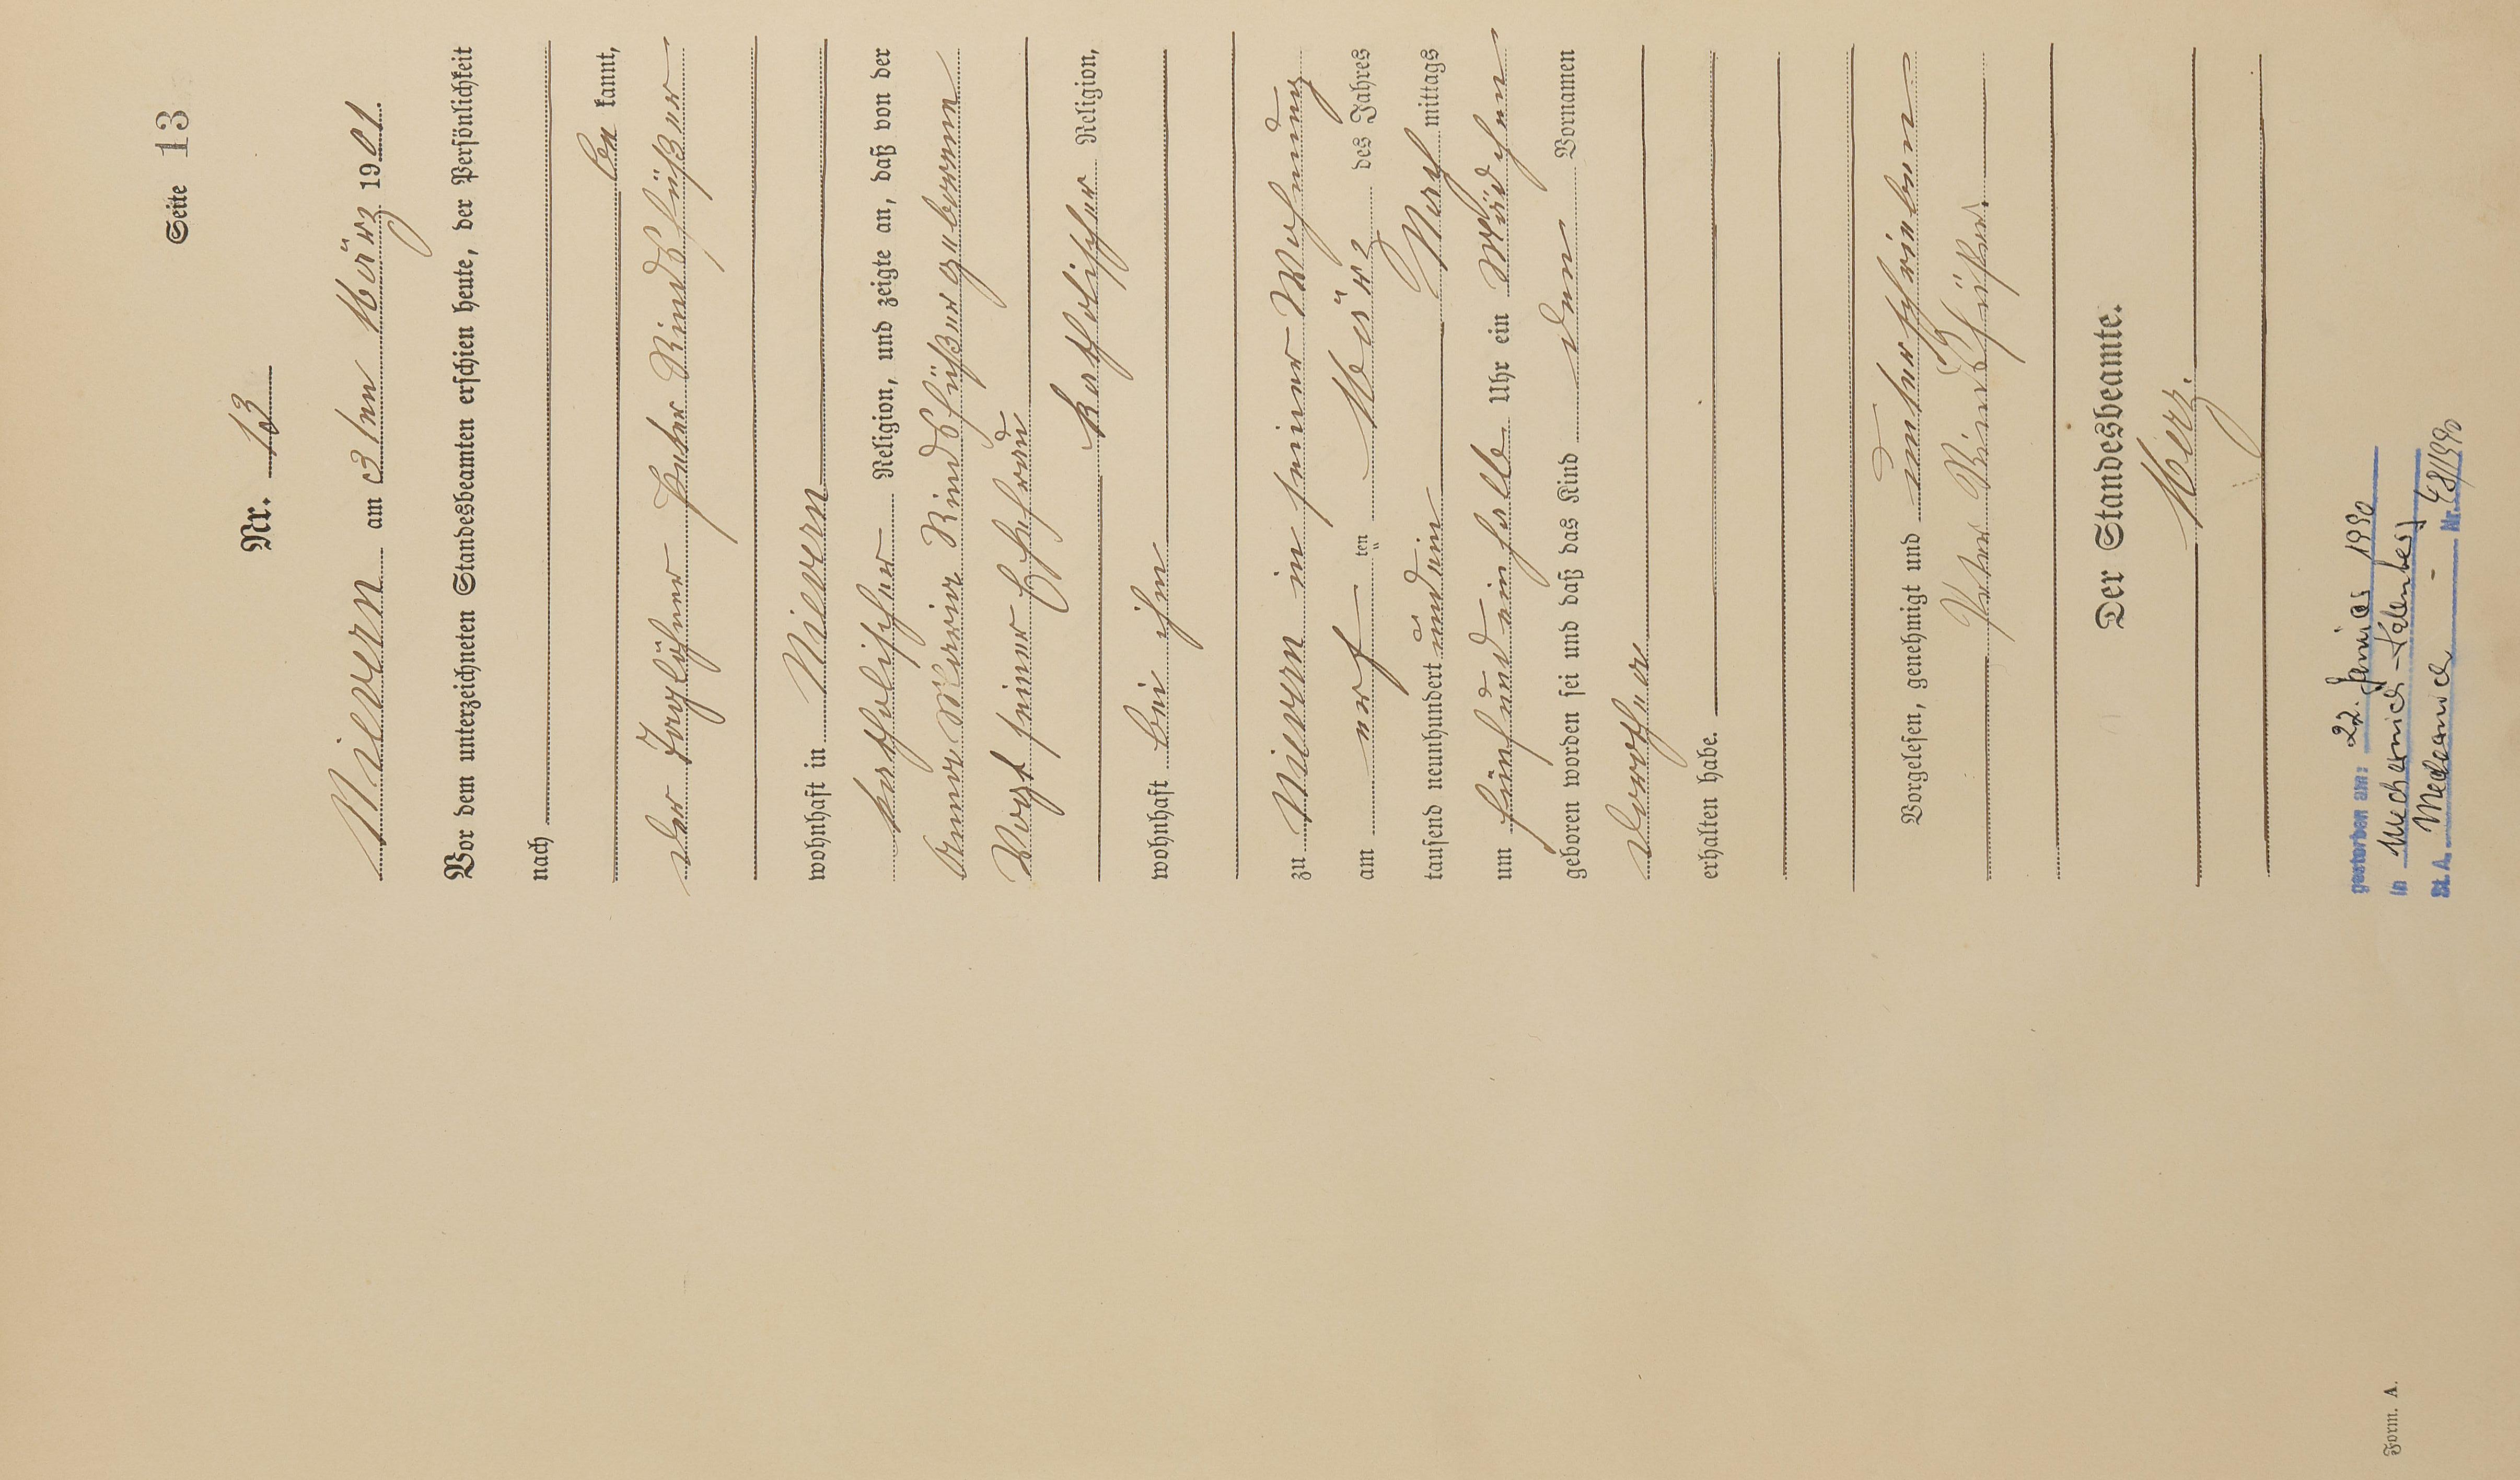 Seite 13
Nr. 13
Nievern am 3ten März 1901.
Vor dem unterzeichneten Standesbeamten erschien heute, der Persönlichkeit
nach
be kannt,
der Taglöhner Peter Rindsfüßer
wohnhaft in Nievern
katholischer Religion, und zeigte an, daß von der
Anna Maria Rindsfüßer geborene
Vogt seiner Ehefrau
katholischer Religion,
wohnhaft bei ihm
zu Nievern in seiner Wohnung
am ten März des Jahres
tausend neunhundert und ein Nach mittags
um fünf und ein halb Uhr ein Mädchen
geboren worden sei und daß das Kind den Vornamen
Dorothea
erhalten habe.
Vorgelesen, genehmigt und unterschrieben
Peter Rindsfüßer.
Der Standesbeamte.
gestorben am: 22. Januar 1990
in Mechernich-
St. A. Mechernich - Nr. 48/1990
Form. A.